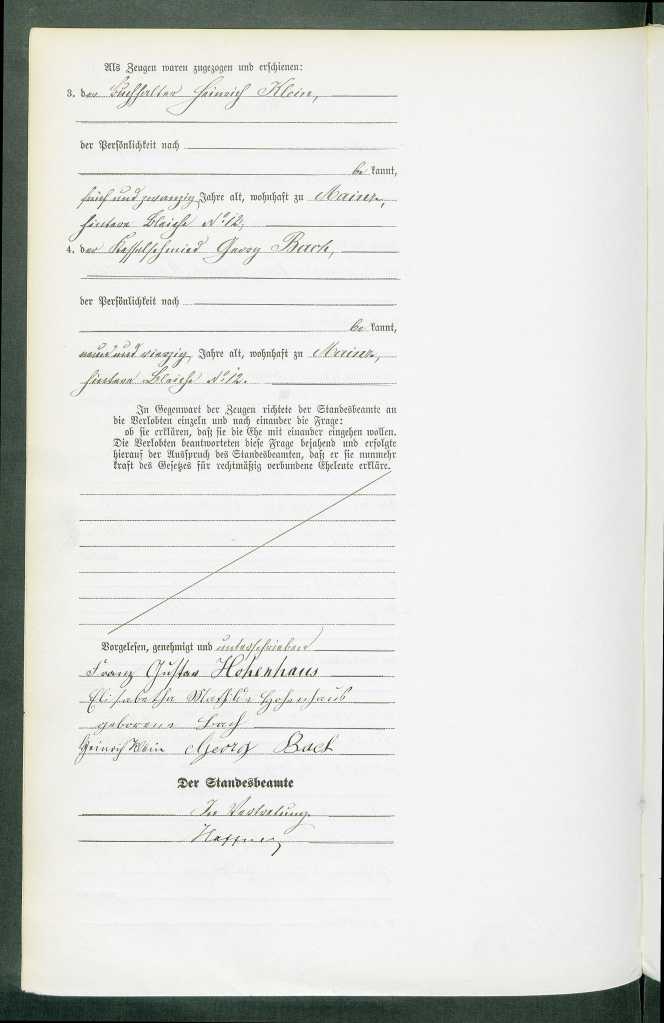 Als Zeugen waren zugezogen und erschienen:
3. der Buchhalter Heinrich Klein,
der Persönlichkeit nach
be kannt,
fünf und zwanzig Jahre alt, wohnhaft zu Mainz,
hintere Bleiche No 12,
4. der Kesselschmied Georg Bach,
der Persönlichkeit nach
be kannt,
neun und vierzig Jahre alt, wohnhaft zu Mainz,
hintere Bleiche No 12.
In Gegenwart der Zeugen richtete der Standesbeamte an
die Verlobten einzeln und nach einander die Frage:
ob sie erklären, daß sie die Ehe mit einander eingehen wollen.
Die Verlobten beantworteten diese Frage bejahend und erfolgte
hierauf der Ausspruch des Standesbeamten, daß er sie nunmehr
kraft des Gesetzes für rechtmäßig verbundene Eheleute erkläre.
Vorgelesen, genehmigt und unterschrieben
Franz Gustav Hohenhaus
Elisabetha Mathilde Hohenhaus
geborene Bach
Heinrich Klein Georg Bach
Der Standesbeamte
In Vertretung.